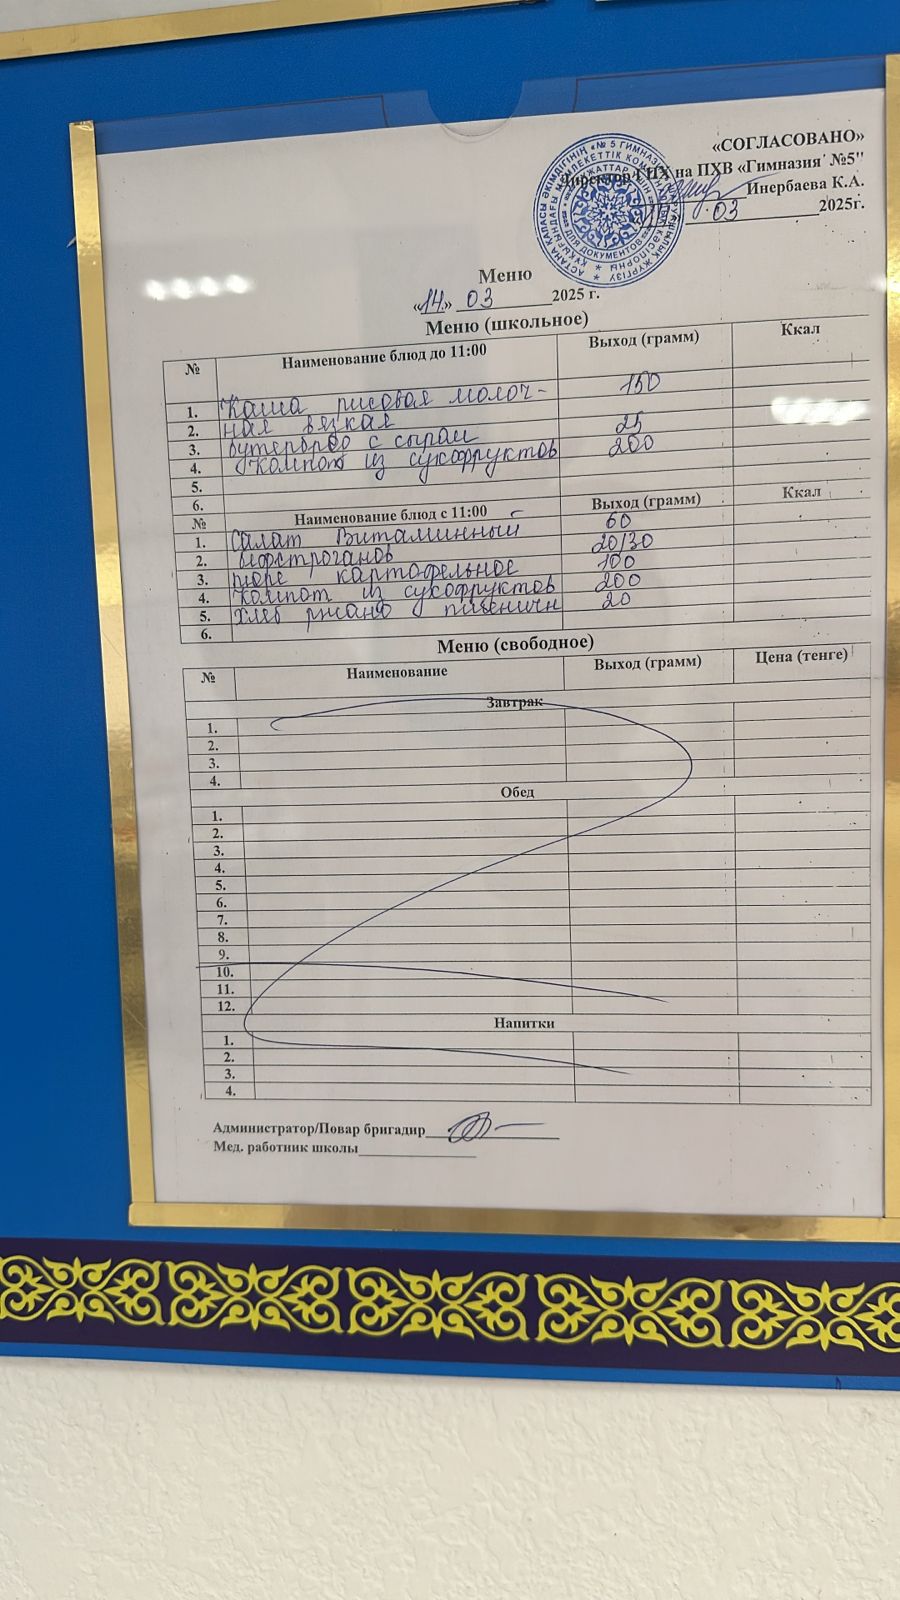 «СОГЛАСОВАНО»
Директор ГПХ на ПХВ «Гимназия №5"
Инербаева К.А.
03 2025г.
Меню
«14» 03 2025 г.
Меню (школьное)
№ Наименование блюд до 11:00 Выход (грамм) Ккал
1. Каша рисовая молоч- 150
2. ная вязкая
3. бутерброд с сыром 25
4. Компот из сухофруктов 200
5.
6.
№ Наименование блюд с 11:00 Выход (грамм) Ккал
1. Салат Витаминный 60
2. бефстроганов 20/30
3. пюре картофельное 100
4. Компот из сухофруктов 200
5. Хлеб ржано пшеничн 20
6.
Меню (свободное)
№ Наименование Выход (грамм) Цена (тенге)
Завтрак
1.
2.
3.
4.
Обед
1.
2.
3.
4.
5.
6.
7.
8.
9.
10.
11.
12.
Напитки
1.
2.
3.
4.
Администратор/Повар бригадир
Мед. работник школы